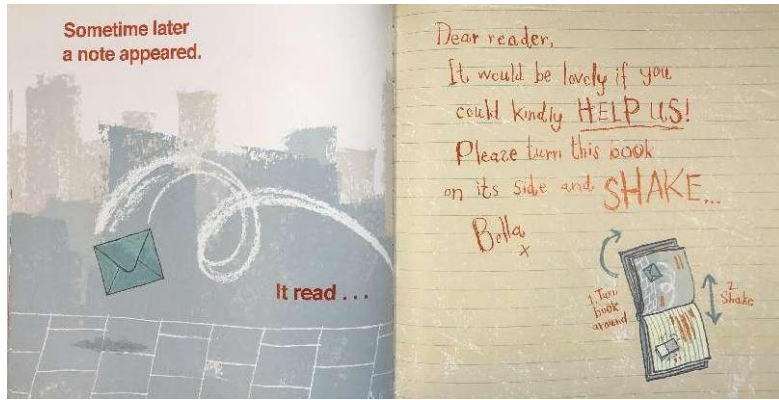 Sometime later
a note appeared.
It read . . .
Dear reader,
It would be lovely if you
could kindly HELP US!
Please turn this book
on its side and SHAKE...
Bella
x
1. Turn
book
around
2.
Shake